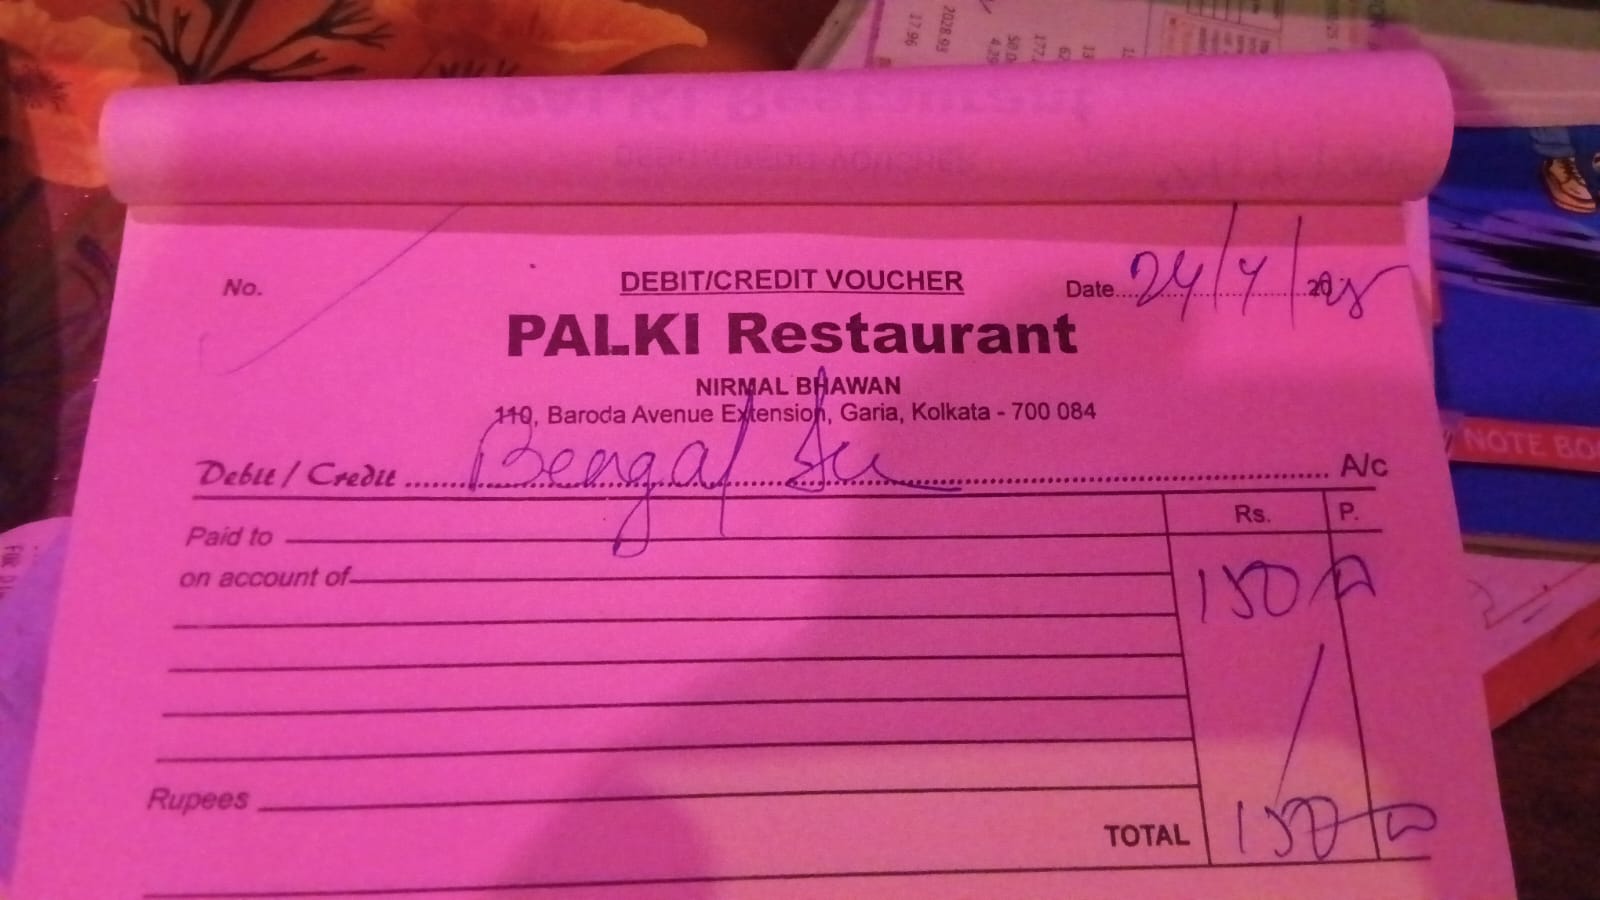 No.
DEBIT/CREDIT VOUCHER
Date 24/4/2025
PALKI Restaurant
NIRMAL BHAWAN
110, Baroda Avenue Extension, Garia, Kolkata - 700 084
Debit / Credit Bengal A/c
Rs. P.
Paid to
on account of
150
Rupees
TOTAL 150
NOTE BO
2028.93
17.96